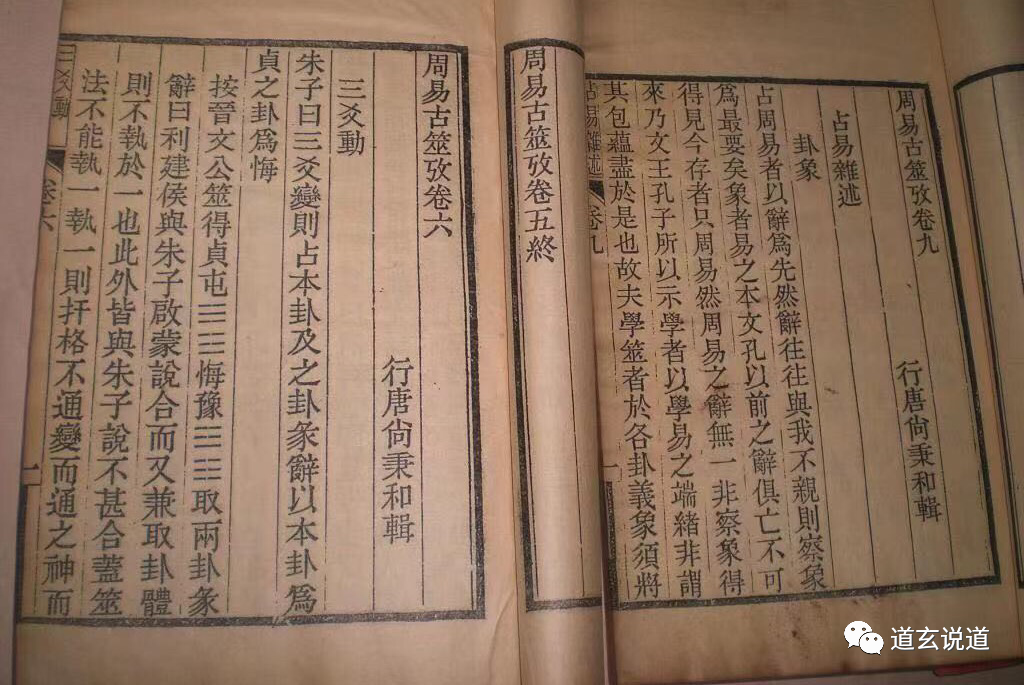 周易古筮攷卷九
行唐尙秉和輯
占易雜述
卦象
占周易者以辭爲先然辭往往與我不親則察象
爲最要矣象者易之本文孔以前之辭俱亡不可
得見今存者只周易然周易之辭無一非察象得
來乃文王孔子所以示學者以學易之端緒非謂
其包蘊盡於是也故夫學筮者於各卦義象須將
占易雜述 卷九 一
周易古筮攷卷五終
周易古筮攷卷六
行唐尙秉和輯
三爻動
朱子曰三爻變則占本卦及之卦彖辭以本卦爲
貞之卦爲悔
按晉文公筮得貞屯悔豫取兩卦彖
辭曰利建侯與朱子啟蒙說合而又兼取卦體
則不執於一也此外皆與朱子說不甚合蓋筮
法不能執一執一則扞格不通變而通之神而
三爻動 卷六 一
道玄说道